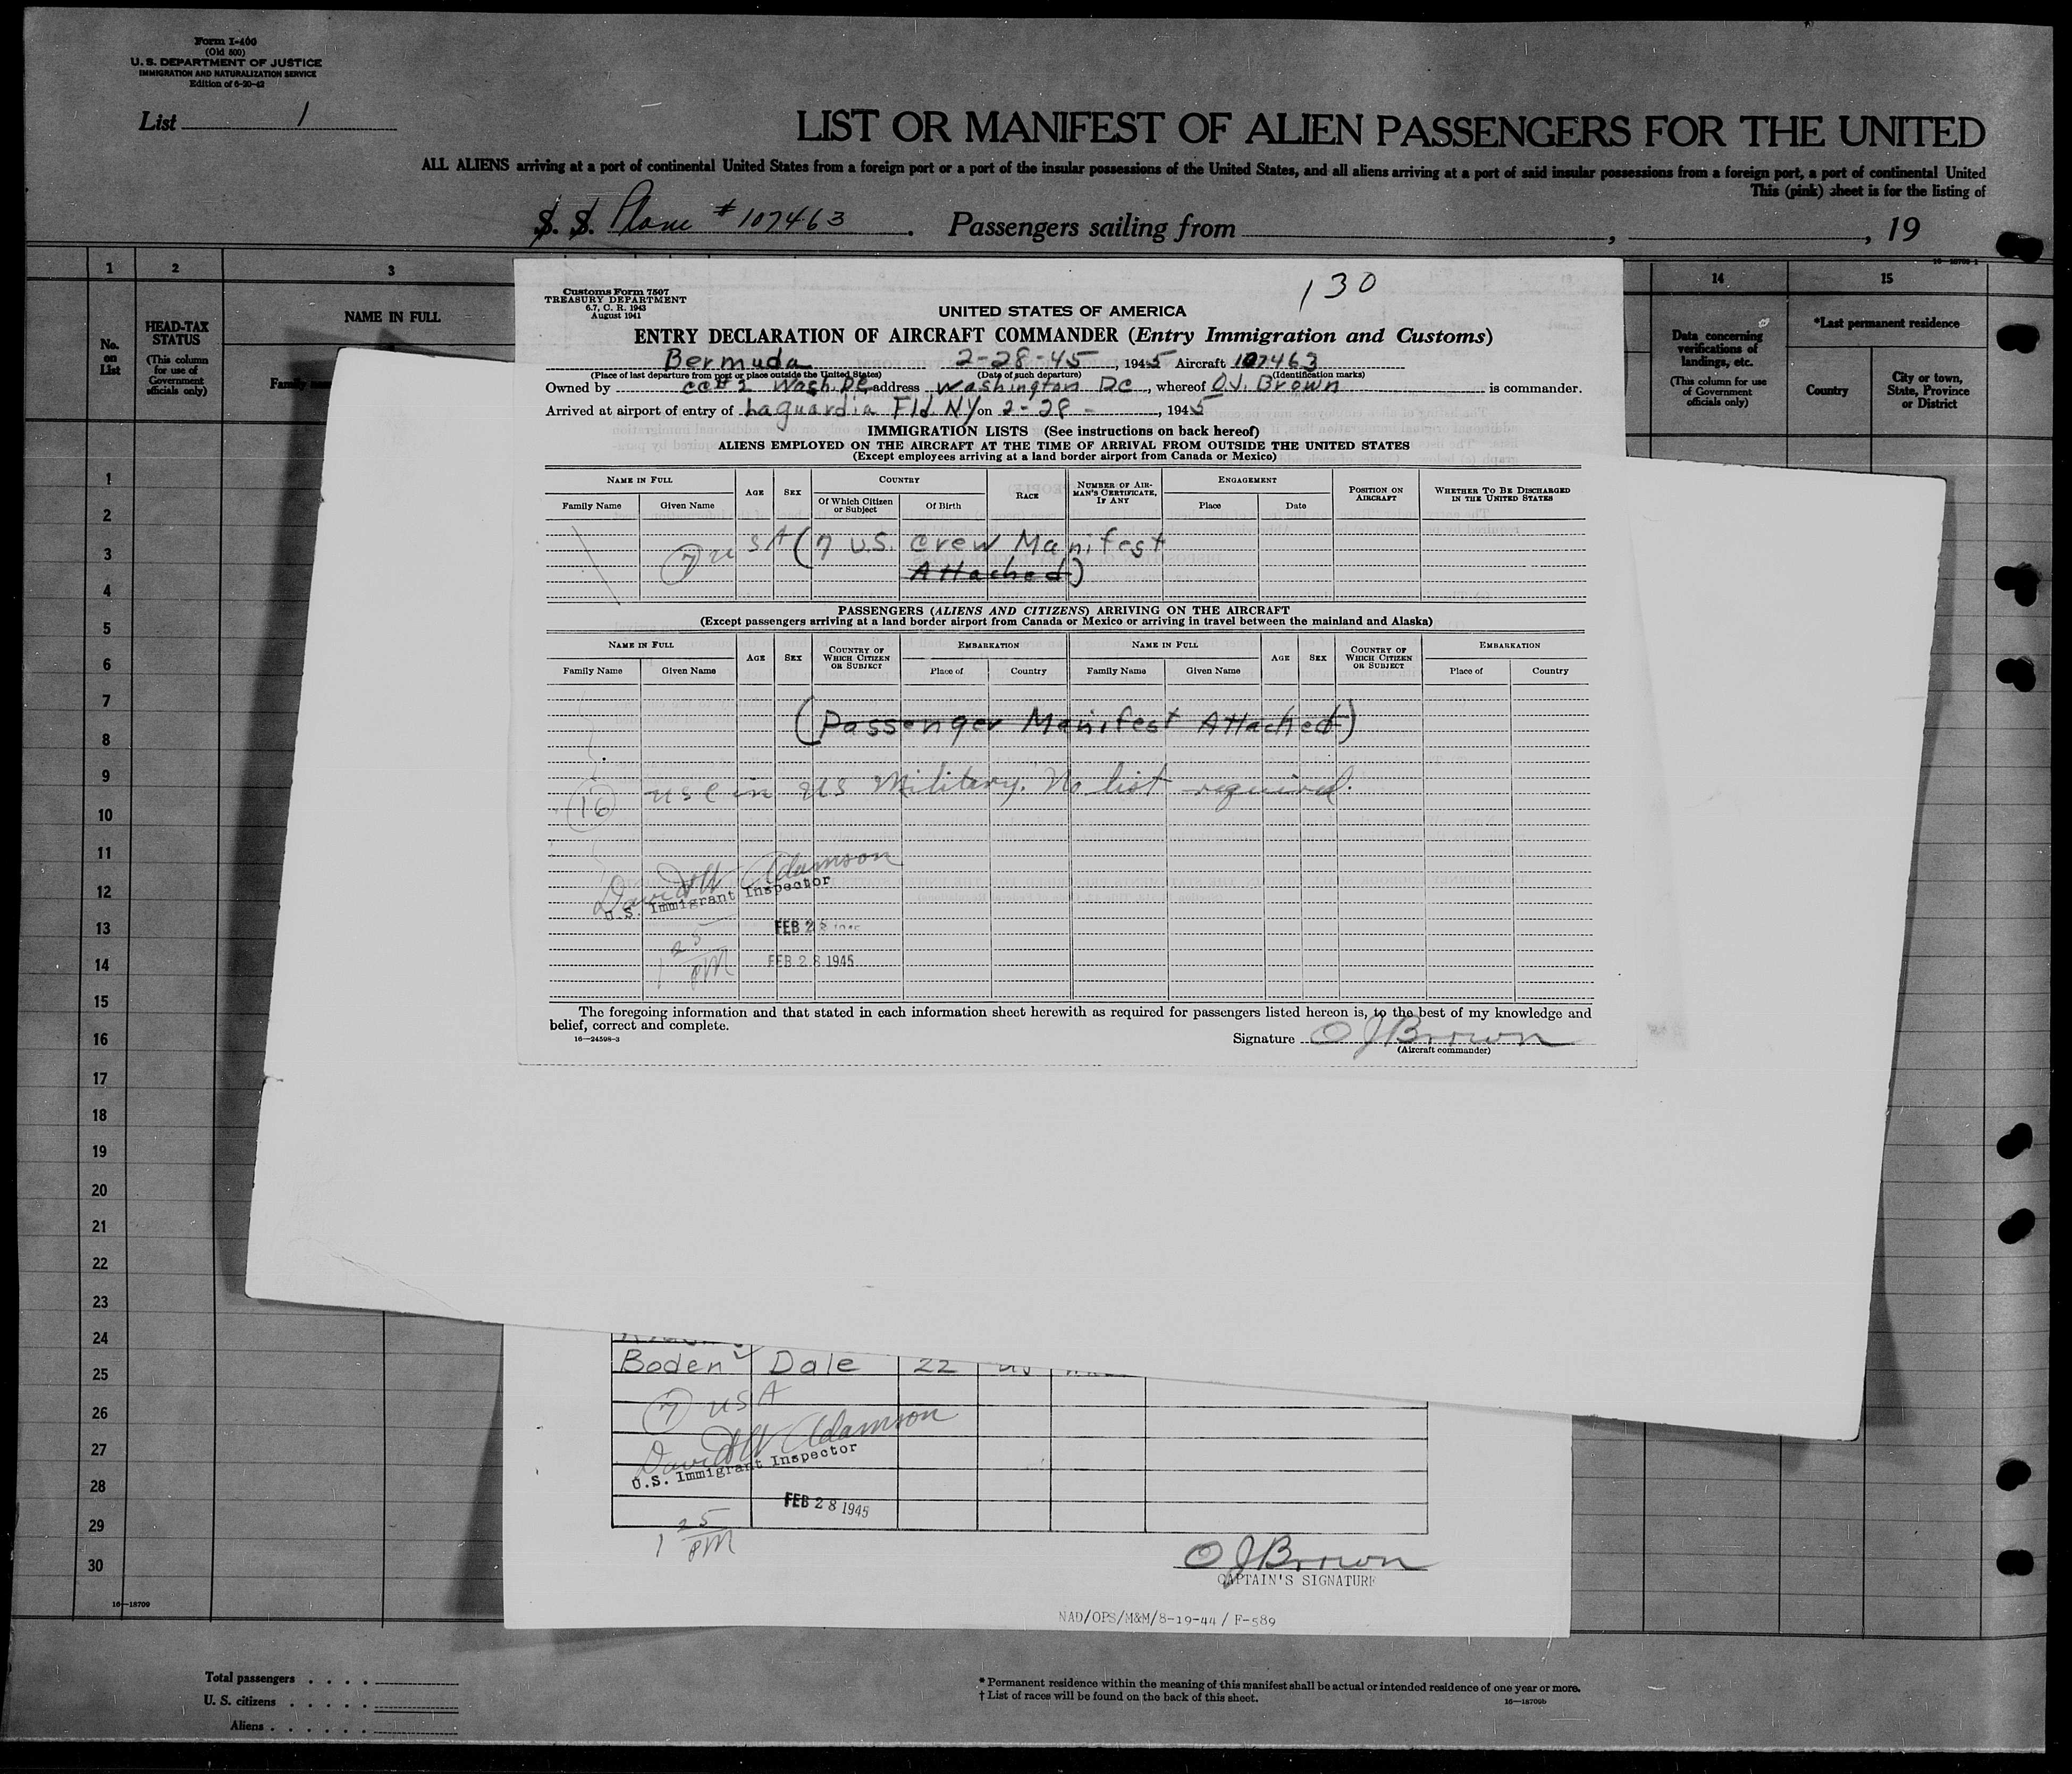 Form I-400
(Old 500)
U. S. DEPARTMENT OF JUSTICE
IMMIGRATION AND NATURALIZATION SERVICE
Edition of 6-20-42
List 1
LIST OR MANIFEST OF ALIEN PASSENGERS FOR THE UNITED
ALL ALIENS arriving at a port of continental United States from a foreign port or a port of the insular possessions of the United States, and all aliens arriving at a port of said insular possessions from a foreign port, a port of continental United
This (pink) sheet is for the listing of
S. S. Plane #107463. Passengers sailing from , , 19
1 2 3 14 15
No. on List
HEAD-TAX STATUS
(This column for use of Government officials only)
NAME IN FULL
Family name
Data concerning verifications of landings, etc.
(This column for use of Government officials only)
*Last permanent residence
Country
City or town, State, Province or District
Customs Form 7507
TREASURY DEPARTMENT
6.7, C. R. 1943
August 1941
130
UNITED STATES OF AMERICA
ENTRY DECLARATION OF AIRCRAFT COMMANDER (Entry Immigration and Customs)
Bermuda 2-28-45, 1945 Aircraft 107463
(Place of last departure from port or place outside the United States) (Date of such departure) (Identification marks)
Owned by cc#2 Wash. DC address Washington DC, whereof O.J. Brown is commander.
Arrived at airport of entry of Laguardia Fld. NY on 2-28-, 1945
IMMIGRATION LISTS (See instructions on back hereof)
ALIENS EMPLOYED ON THE AIRCRAFT AT THE TIME OF ARRIVAL FROM OUTSIDE THE UNITED STATES
(Except employees arriving at a land border airport from Canada or Mexico)
NAME IN FULL AGE SEX COUNTRY RACE NUMBER OF AIRMAN'S CERTIFICATE, IF ANY ENGAGEMENT POSITION ON AIRCRAFT WHETHER TO BE DISCHARGED IN THE UNITED STATES
Family Name Given Name Of Which Citizen or Subject Of Birth Place Date
7 USA (7 U.S. Crew Manifest
Attached)
PASSENGERS (ALIENS AND CITIZENS) ARRIVING ON THE AIRCRAFT
(Except passengers arriving at a land border airport from Canada or Mexico or arriving in travel between the mainland and Alaska)
NAME IN FULL AGE SEX COUNTRY OF WHICH CITIZEN OR SUBJECT EMBARKATION NAME IN FULL AGE SEX COUNTRY OF WHICH CITIZEN OR SUBJECT EMBARKATION
Family Name Given Name Place of Country Family Name Given Name Place of Country
(Passenger Manifest Attached)
16 USC in US Military. No list required.
David W Adamson
U.S. Immigrant Inspector
FEB 28 1945
1 25 PM FEB 28 1945
The foregoing information and that stated in each information sheet herewith as required for passengers listed hereon is, to the best of my knowledge and
belief, correct and complete.
16—24598-3
Signature O J Brown
(Aircraft commander)
1
2
3
4
5
6
7
8
9
10
11
12
13
14
15
16
17
18
19
20
21
22
23
24
25
26
27
28
29
30
Boden Dale 22 US
7 USA
David W Adamson
U.S. Immigrant Inspector
FEB 28 1945
1 25 PM
O J Brown
CAPTAIN'S SIGNATURE
NAD/OPS/M&M/8-19-44 / F-589
16—18709
Total passengers
U. S. citizens
Aliens
* Permanent residence within the meaning of this manifest shall be actual or intended residence of one year or more.
† List of races will be found on the back of this sheet.
16—18709b